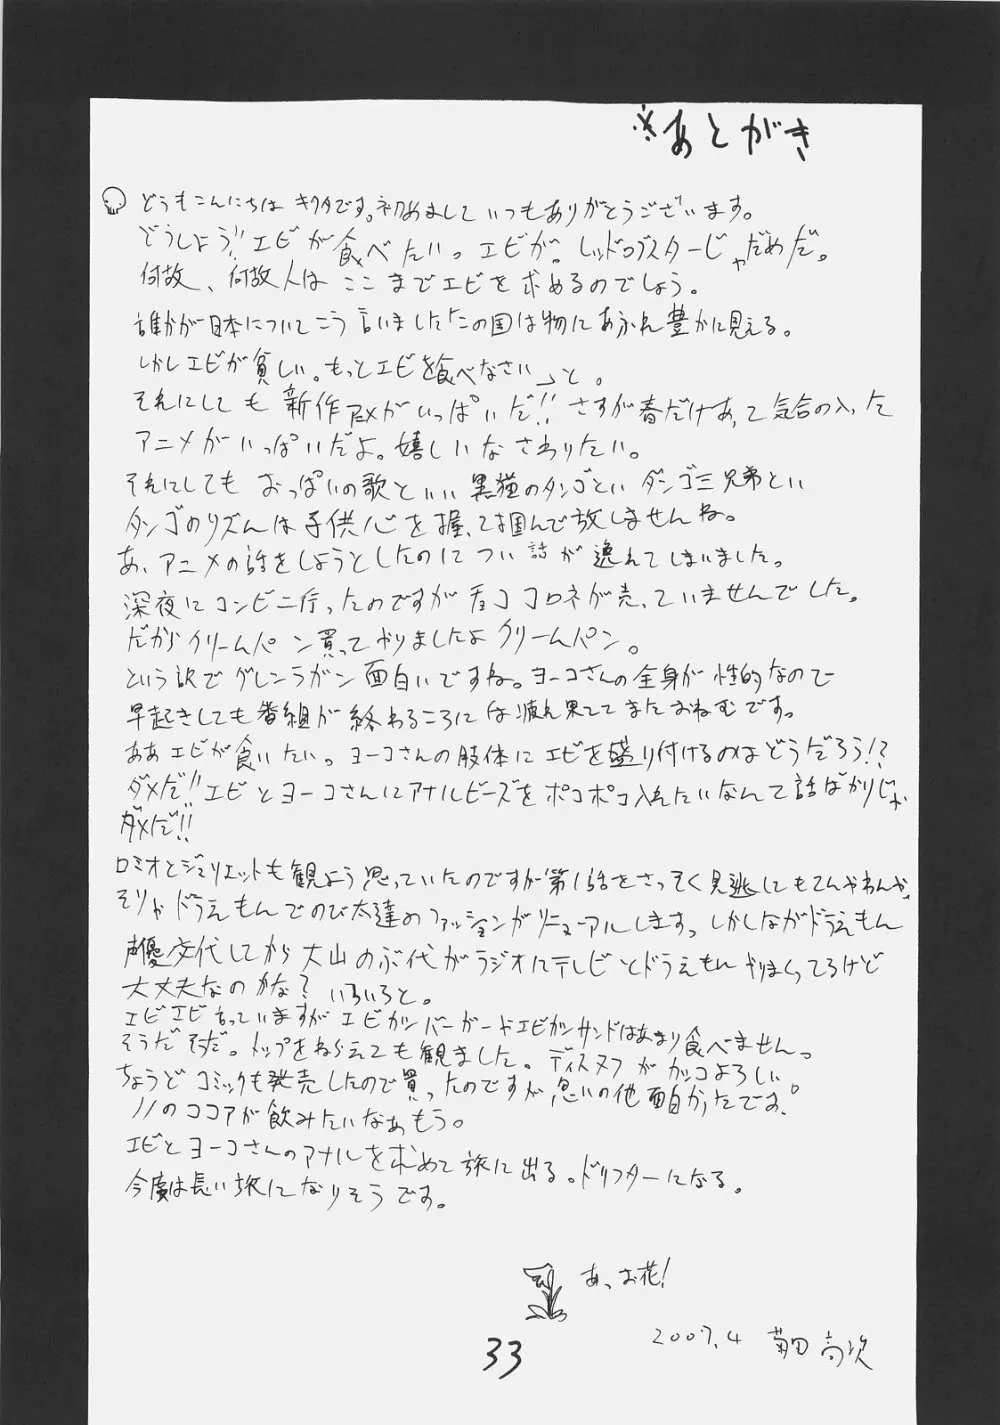 ※あとがき
どうもこんにちは キクタです。初めまして いつもありがとうございます。
どうしよう!! エビが食べたいっ エビが。レッドロブスターじゃだめだ。
何故、何故人は ここまでエビを求めるのでしょう。
誰かが日本についてこう言いました「この国は物にあふれ豊かに見える。
しかしエビが貧しい。もっとエビを食べなさい」と。
それにしても 新作アニメがいっぱいだ!! さすが春だけあって気合の入った
アニメがいっぱいだよ。嬉しいなさわりたい。
それにしても おっぱいの歌といい 黒猫のタンゴといい ダンゴ三兄弟とい
タンゴのリズムは子供心を握って掴んで放しませんね。
あ、アニメの話をしようとしたのについ話が逸れてしまいました。
深夜にコンビニ行ったのですがチョココロネが売っていませんでした。
だからクリームパン買ってやりましたよクリームパン。
という訳でグレンラガン面白いですね。ヨーコさんの全身が性的なので
早起きしても番組が終わるころには疲れ果ててまたおねむです。
ああエビが食いたい。ヨーコさんの肢体にエビを盛り付けるのはどうだろう!?
ダメだ!! エビとヨーコさんにアナルビーズをポコポコ入れたいなんて話ばかりじゃ
ダメだ!!
ロミオとジュリエットも観よう思っていたのですが第1話をさっそく見逃してもてんやわんや、
そりゃドラえもんでのび太達のファッションがリニューアルします。しかしながらドラえもん
声優交代してから大山のぶ代がラジオにテレビとドラえもんやりまくってるけど
大丈夫なのかな? いろいろと。
エビエビ言っていますがエビカツバーガーやエビカツサンドはあまり食べませんっ
そうだそうだ。トップをねらえ2も観ました。ディスヌフがカッコよろしい
ちょうどコミックも発売したので買ったのですが思いの他面白かったです。
ノノのココアが飲みたいなぁもう。
エビとヨーコさんのアナルを求めて旅に出る。ドリフターになる。
今度は長い旅になりそうです。
あっ お花!
2007.4 菊田高次
33